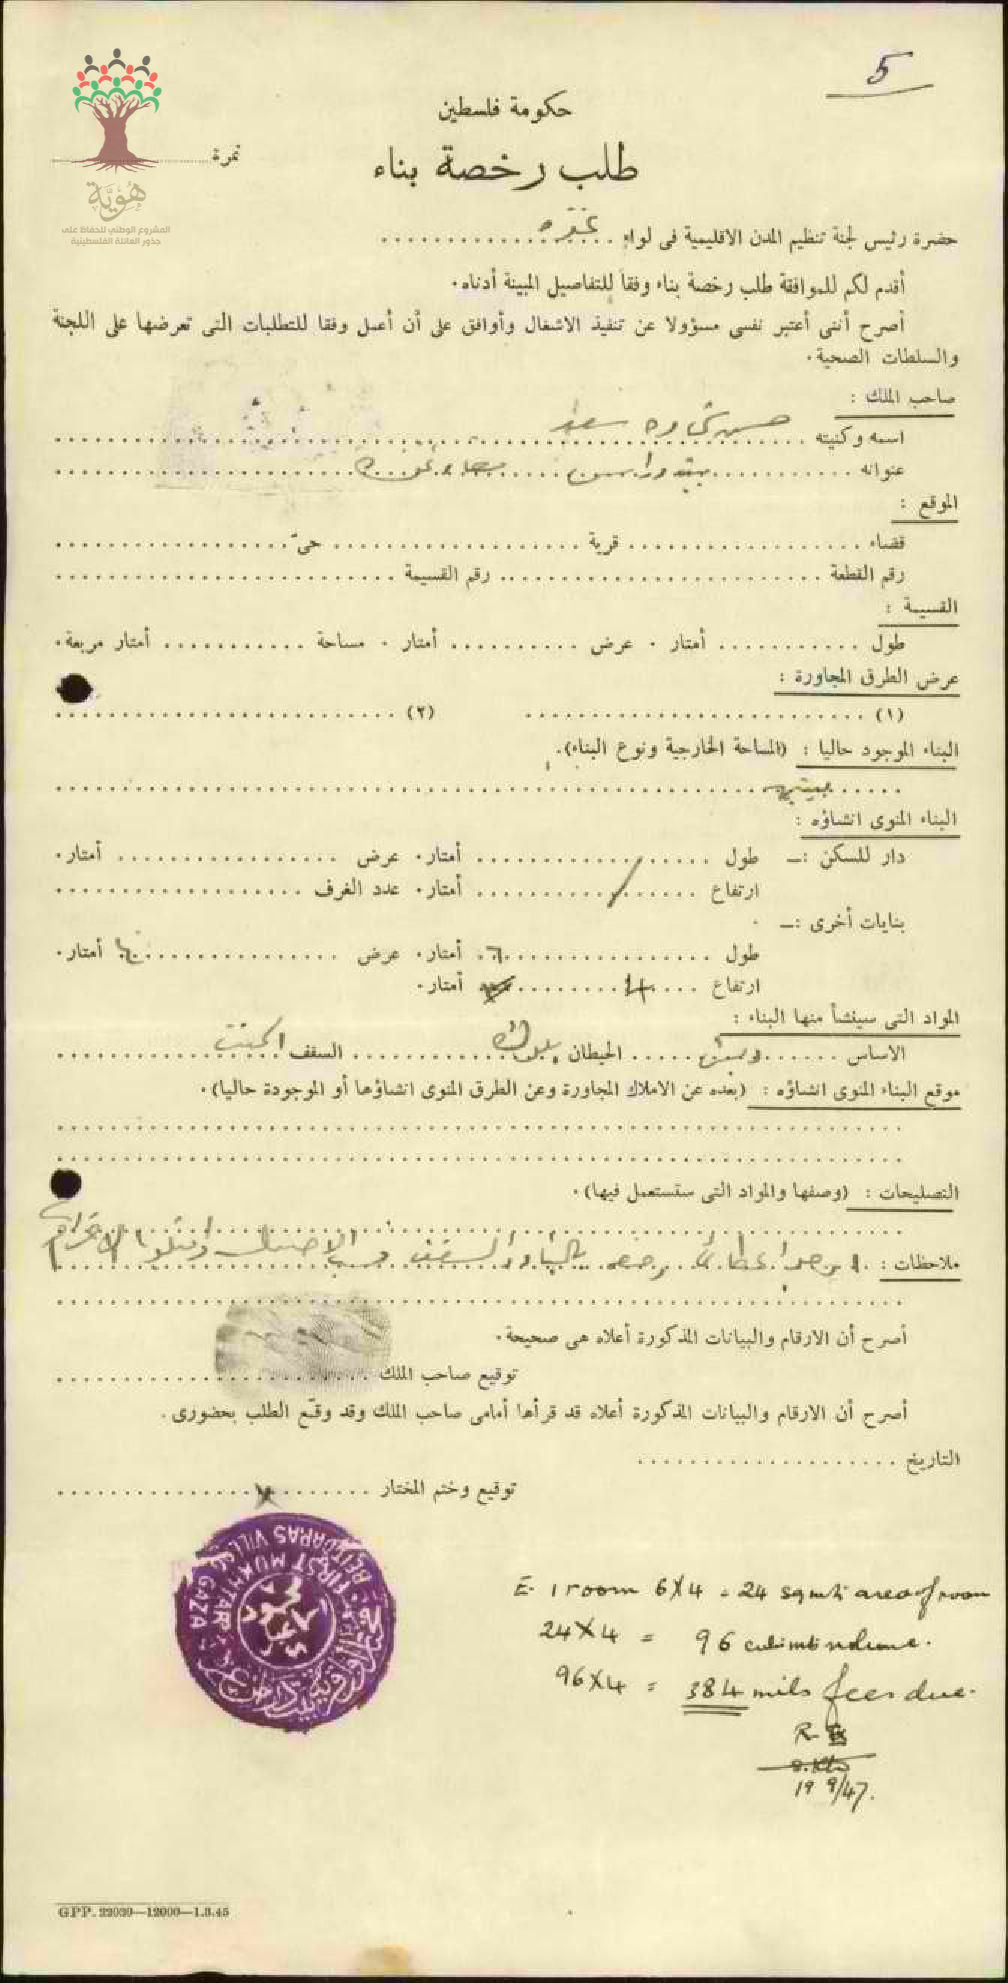 5
حكومة فلسطين
طلب رخصة بناء
نمرة
هُوِيَّة
المشروع الوطني للحفاظ على
جذور العائلة الفلسطينية
حضرة رئيس لجنة تنظيم المدن الاقليمية فى لواء غزه
أقدم لكم للموافقة طلب رخصة بناء وفقاً للتفاصيل المبينة أدناه.
أصرح أننى أعتبر نفسى مسؤولا عن تنفيذ الاشغال وأوافق على أن أعمل وفقا للتطلبات التى تعرضها على اللجنة
والسلطات الصحية.
صاحب الملك :
اسمه وكنيته حسن
عنوانه غزة
الموقع :
قضاء قرية حىّ
رقم القطعة رقم القسيمة
القسيمة :
طول أمتار . عرض أمتار . مساحة أمتار مربعة.
عرض الطرق المجاورة :
(١) (٢)
البناء الموجود حاليا : (المساحة الخارجية ونوع البناء).
البناء المنوى انشاؤه :
دار للسكن :— طول أمتار. عرض أمتار.
ارتفاع أمتار. عدد الغرف
بنايات أخرى :—
طول ٦ أمتار. عرض ٤ أمتار.
ارتفاع 4 أمتار.
المواد التى سينشأ منها البناء :
الاساس الحيطان السقف
موقع البناء المنوى انشاؤه : (بعده عن الاملاك المجاورة وعن الطرق المنوى انشاؤها أو الموجودة حاليا).
التصليحات : (وصفها والمواد التى ستستعمل فيها).
ملاحظات :
أصرح أن الارقام والبيانات المذكورة أعلاه هى صحيحة.
توقيع صاحب الملك
أصرح أن الارقام والبيانات المذكورة أعلاه قد قرأها أمامى صاحب الملك وقد وقّع الطلب بحضورى.
التاريخ
توقيع وختم المختار
FIRST MUKHTAR
BEIT DARAS VILLAGE GAZA
1 room 6X4 = 24 sq mts area of room
24X4 = 96 cubi mts volume.
96X4 = 384 mils fees due.
19 9/47.
GPP. 22039—12000—1.3.45